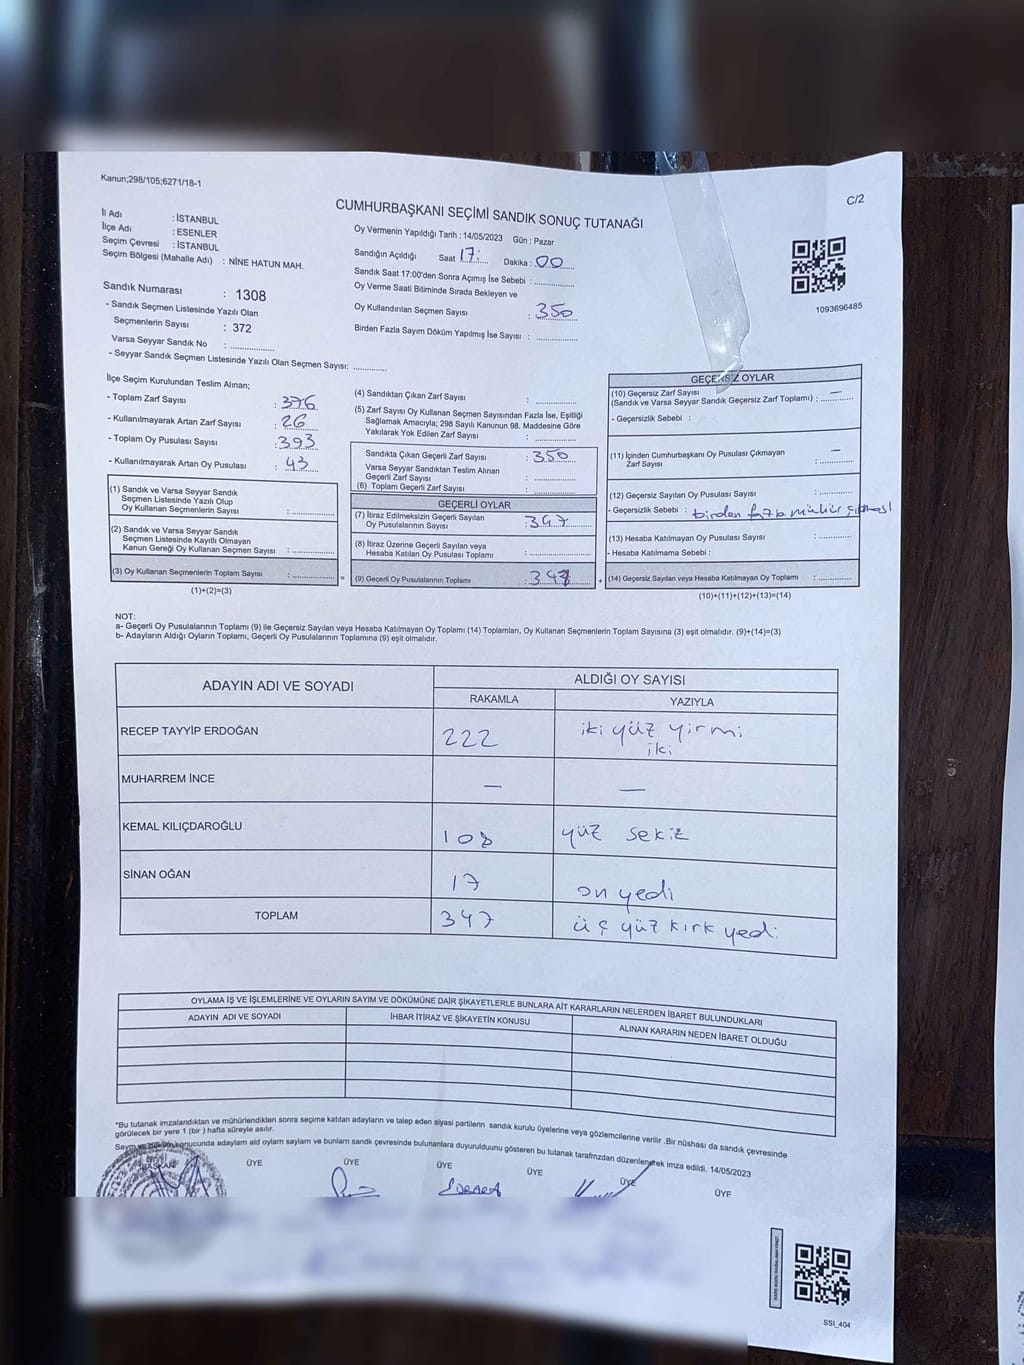 Kanun;298/105;6271/18-1
C/2
CUMHURBAŞKANI SEÇİMİ SANDIK SONUÇ TUTANAĞI
İl Adı : İSTANBUL
İlçe Adı : ESENLER
Seçim Çevresi : İSTANBUL
Seçim Bölgesi (Mahalle Adı) : NİNE HATUN MAH.
Sandık Numarası : 1308
- Sandık Seçmen Listesinde Yazılı Olan
Seçmenlerin Sayısı : 372
Varsa Seyyar Sandık No :
- Seyyar Sandık Seçmen Listesinde Yazılı Olan Seçmen Sayısı:
Oy Vermenin Yapıldığı Tarih : 14/05/2023 Gün : Pazar
Sandığın Açıldığı Saat 17: Dakika : 00
Sandık Saat 17:00'den Sonra Açımış İse Sebebi :
Oy Verme Saati Bitiminde Sırada Bekleyen ve
Oy Kullandırılan Seçmen Sayısı : 350
Birden Fazla Sayım Döküm Yapılmış İse Sayısı :
1093696485
İlçe Seçim Kurulundan Teslim Alınan;
- Toplam Zarf Sayısı : 376
- Kullanılmayarak Artan Zarf Sayısı : 26
- Toplam Oy Pusulası Sayısı : 393
- Kullanılmayarak Artan Oy Pusulası : 43
(1) Sandık ve Varsa Seyyar Sandık
Seçmen Listesinde Yazılı Olup
Oy Kullanan Seçmenlerin Sayısı :
(2) Sandık ve Varsa Seyyar Sandık
Seçmen Listesinde Kayıtlı Olmayan
Kanun Gereği Oy Kullanan Seçmen Sayısı :
(3) Oy Kullanan Seçmenlerin Toplam Sayısı : =
(1)+(2)=(3)
(4) Sandıktan Çıkan Zarf Sayısı :
(5) Zarf Sayısı Oy Kullanan Seçmen Sayısından Fazla İse, Eşitliği
Sağlamak Amacıyla; 298 Sayılı Kanunun 98. Maddesine Göre
Yakılarak Yok Edilen Zarf Sayısı :
Sandıkta Çıkan Geçerli Zarf Sayısı : 350
Varsa Seyyar Sandıktan Teslim Alınan
Geçerli Zarf Sayısı :
(6) Toplam Geçerli Zarf Sayısı :
GEÇERLİ OYLAR
(7) İtiraz Edilmeksizin Geçerli Sayılan
Oy Pusulalarının Sayısı : 347
(8) İtiraz Üzerine Geçerli Sayılan veya
Hesaba Katılan Oy Pusulası Toplamı :
(9) Geçerli Oy Pusulalarının Toplamı : 347 +
GEÇERSİZ OYLAR
(10) Geçersiz Zarf Sayısı —
(Sandık ve Varsa Seyyar Sandık Geçersiz Zarf Toplamı) :
- Geçersizlik Sebebi :
(11) İçinden Cumhurbaşkanı Oy Pusulası Çıkmayan —
Zarf Sayısı :
(12) Geçersiz Sayılan Oy Pusulası Sayısı :
- Geçersizlik Sebebi : birden fazla mühür çıkması
(13) Hesaba Katılmayan Oy Pusulası Sayısı :
- Hesaba Katılmama Sebebi :
(14) Geçersiz Sayılan veya Hesaba Katılmayan Oy Toplamı :
(10)+(11)+(12)+(13)=(14)
NOT:
a- Geçerli Oy Pusulalarının Toplamı (9) ile Geçersiz Sayılan veya Hesaba Katılmayan Oy Toplamı (14) Toplamları, Oy Kullanan Seçmenlerin Toplam Sayısına (3) eşit olmalıdır. (9)+(14)=(3)
b- Adayların Aldığı Oyların Toplamı, Geçerli Oy Pusulalarının Toplamına (9) eşit olmalıdır.
ADAYIN ADI VE SOYADI
ALDIĞI OY SAYISI
RAKAMLA YAZIYLA
RECEP TAYYİP ERDOĞAN 222 iki yüz yirmi
iki
MUHARREM İNCE — —
KEMAL KILIÇDAROĞLU 108 yüz sekiz
SİNAN OĞAN 17 on yedi
TOPLAM 347 üç yüz kırk yedi
OYLAMA İŞ VE İŞLEMLERİNE VE OYLARIN SAYIM VE DÖKÜMÜNE DAİR ŞİKAYETLERLE BUNLARA AİT KARARLARIN NELERDEN İBARET BULUNDUKLARI
ADAYIN ADI VE SOYADI İHBAR İTİRAZ VE ŞİKAYETİN KONUSU ALINAN KARARIN NEDEN İBARET OLDUĞU
*Bu tutanak imzalandıktan ve mühürlendikten sonra seçime katılan adayların ve talep eden siyasi partilerin sandık kurulu üyelerine veya gözlemcilerine verilir .Bir nüshası da sandık çevresinde
görülecek bir yere 1 (bir ) hafta süreyle asılır.
sonucunda adayların ald oyların sayların ve bunların sandk çevresinde bulunanlara duyurulduunu gösteren bu tutanak tarafmzdan düzenlenerek imza edildi. 14/05/2023
BAŞKAN ÜYE ÜYE ÜYE ÜYE ÜYE ÜYE
SSI_404